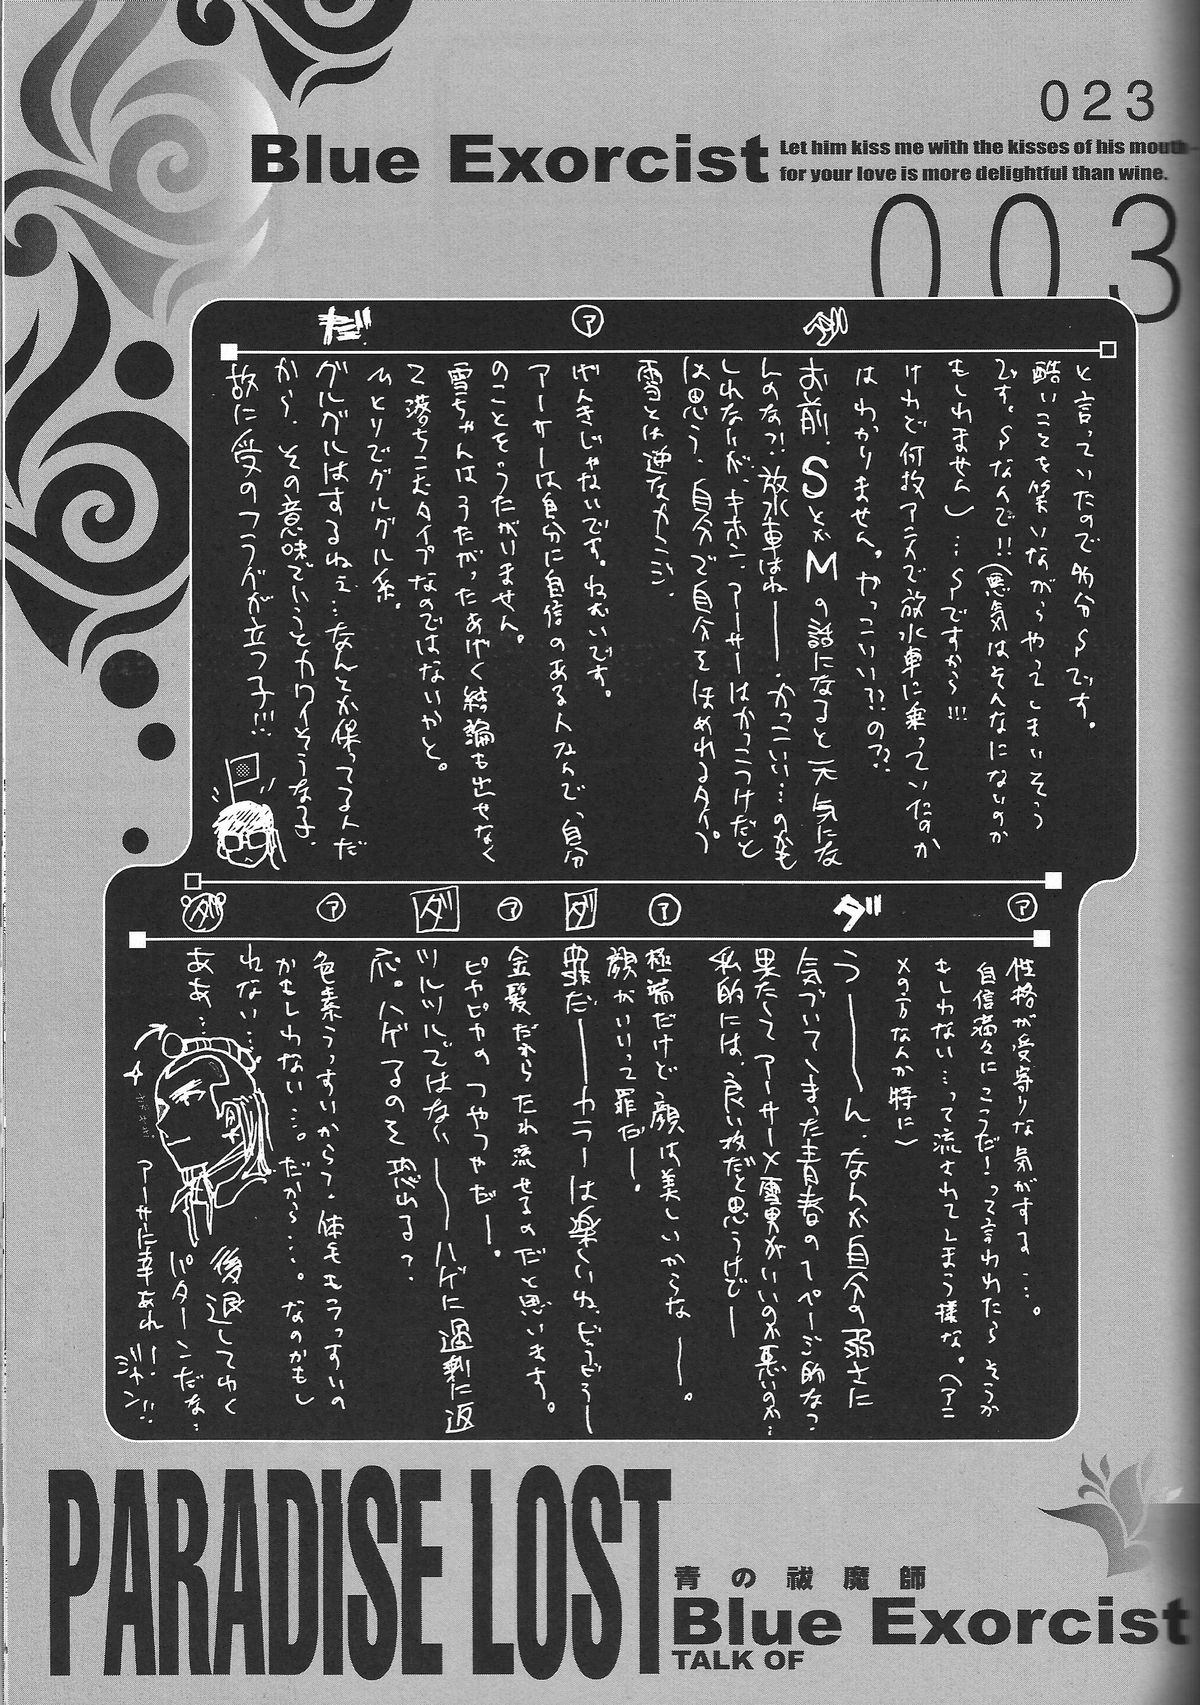 023
Blue Exorcist
Let him kiss me with the kisses of his mouth-
for your love is more delightful than wine.
003
と言っていたので多分Sです。
酷いことを笑いながらやってしまいそう
です。Sなんで!!(悪気はそんなにないのか
もしれません)…Sですから!!!
けれど何故アニメで放水車に乗っていたのか
はわかりません。やっこいい??の??
ダ
お前、SとかMの話になると元気にな
んのな?!放水車はねー、かっこいい…のかも
しれないが、キホン、アーサーはかっこつけだと
は思う、自分で自分をほめれるタイプ。
雪とは逆なカンジ。
ア
げんきじゃないです。ねむいです。
アーサーは自分に自信のある人なんで、自分
のことをうたがいません。
雪ちゃんはうたがったあげく結論も出せなく
て落ちこむタイプなのではないかと。
ひとりでグルグル系。
だ
グルグルはするねぇ…なんとか保ってるんだ
から、その意味でいうとカワイそうな子、
故に受のフラグが立つ子!!!
ア
性格が受寄りな気がする…。
自信満々にこうだ!って言われたらそうか
もしれない…って流されてしまう様な。(アニ
メの方なんか特に)
ダ
うーーん、なんか自分の弱さに
気づいてしまった青春の1ページ的なっ
果たしてアーサー×雪男がいいのか悪いのか…
私的には、良い攻だと思うけどー
ア
極論だけど顔は美しいからなー。
顔がいいって罪だー。
ダ
罪だーーカラーは楽しいね、どうどうー
ア
金髪だからたれ流せるのだと思います。
ピカピカのつやつやだー。
ダ
ツルツルではないーーハゲに過剰に返
応。ハゲるのを恐れる?
ア
色素うっすいからって、体毛もうっすいの
かもしれない…。だから…。なのかもし
れない…
ダ
ああ…
後退してゆく
パターンだな…
アーサーに幸あれ!!
ジャン!!
PARADISE LOST
青の祓魔師
Blue Exorcist
TALK OF